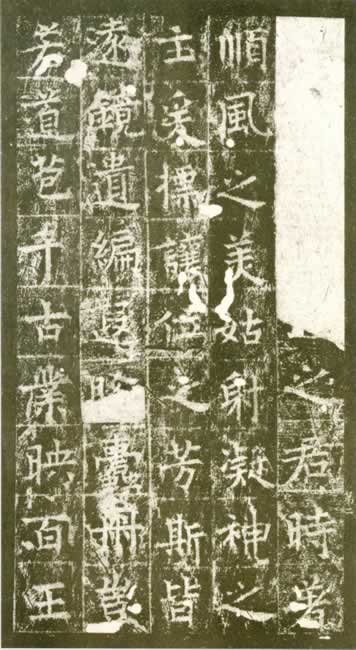 之君時著
順風之美姑射凝神之
主爰標讓位之芳斯皆
遠鏡遺編遐囊冊豈
若道苞千古業映百王